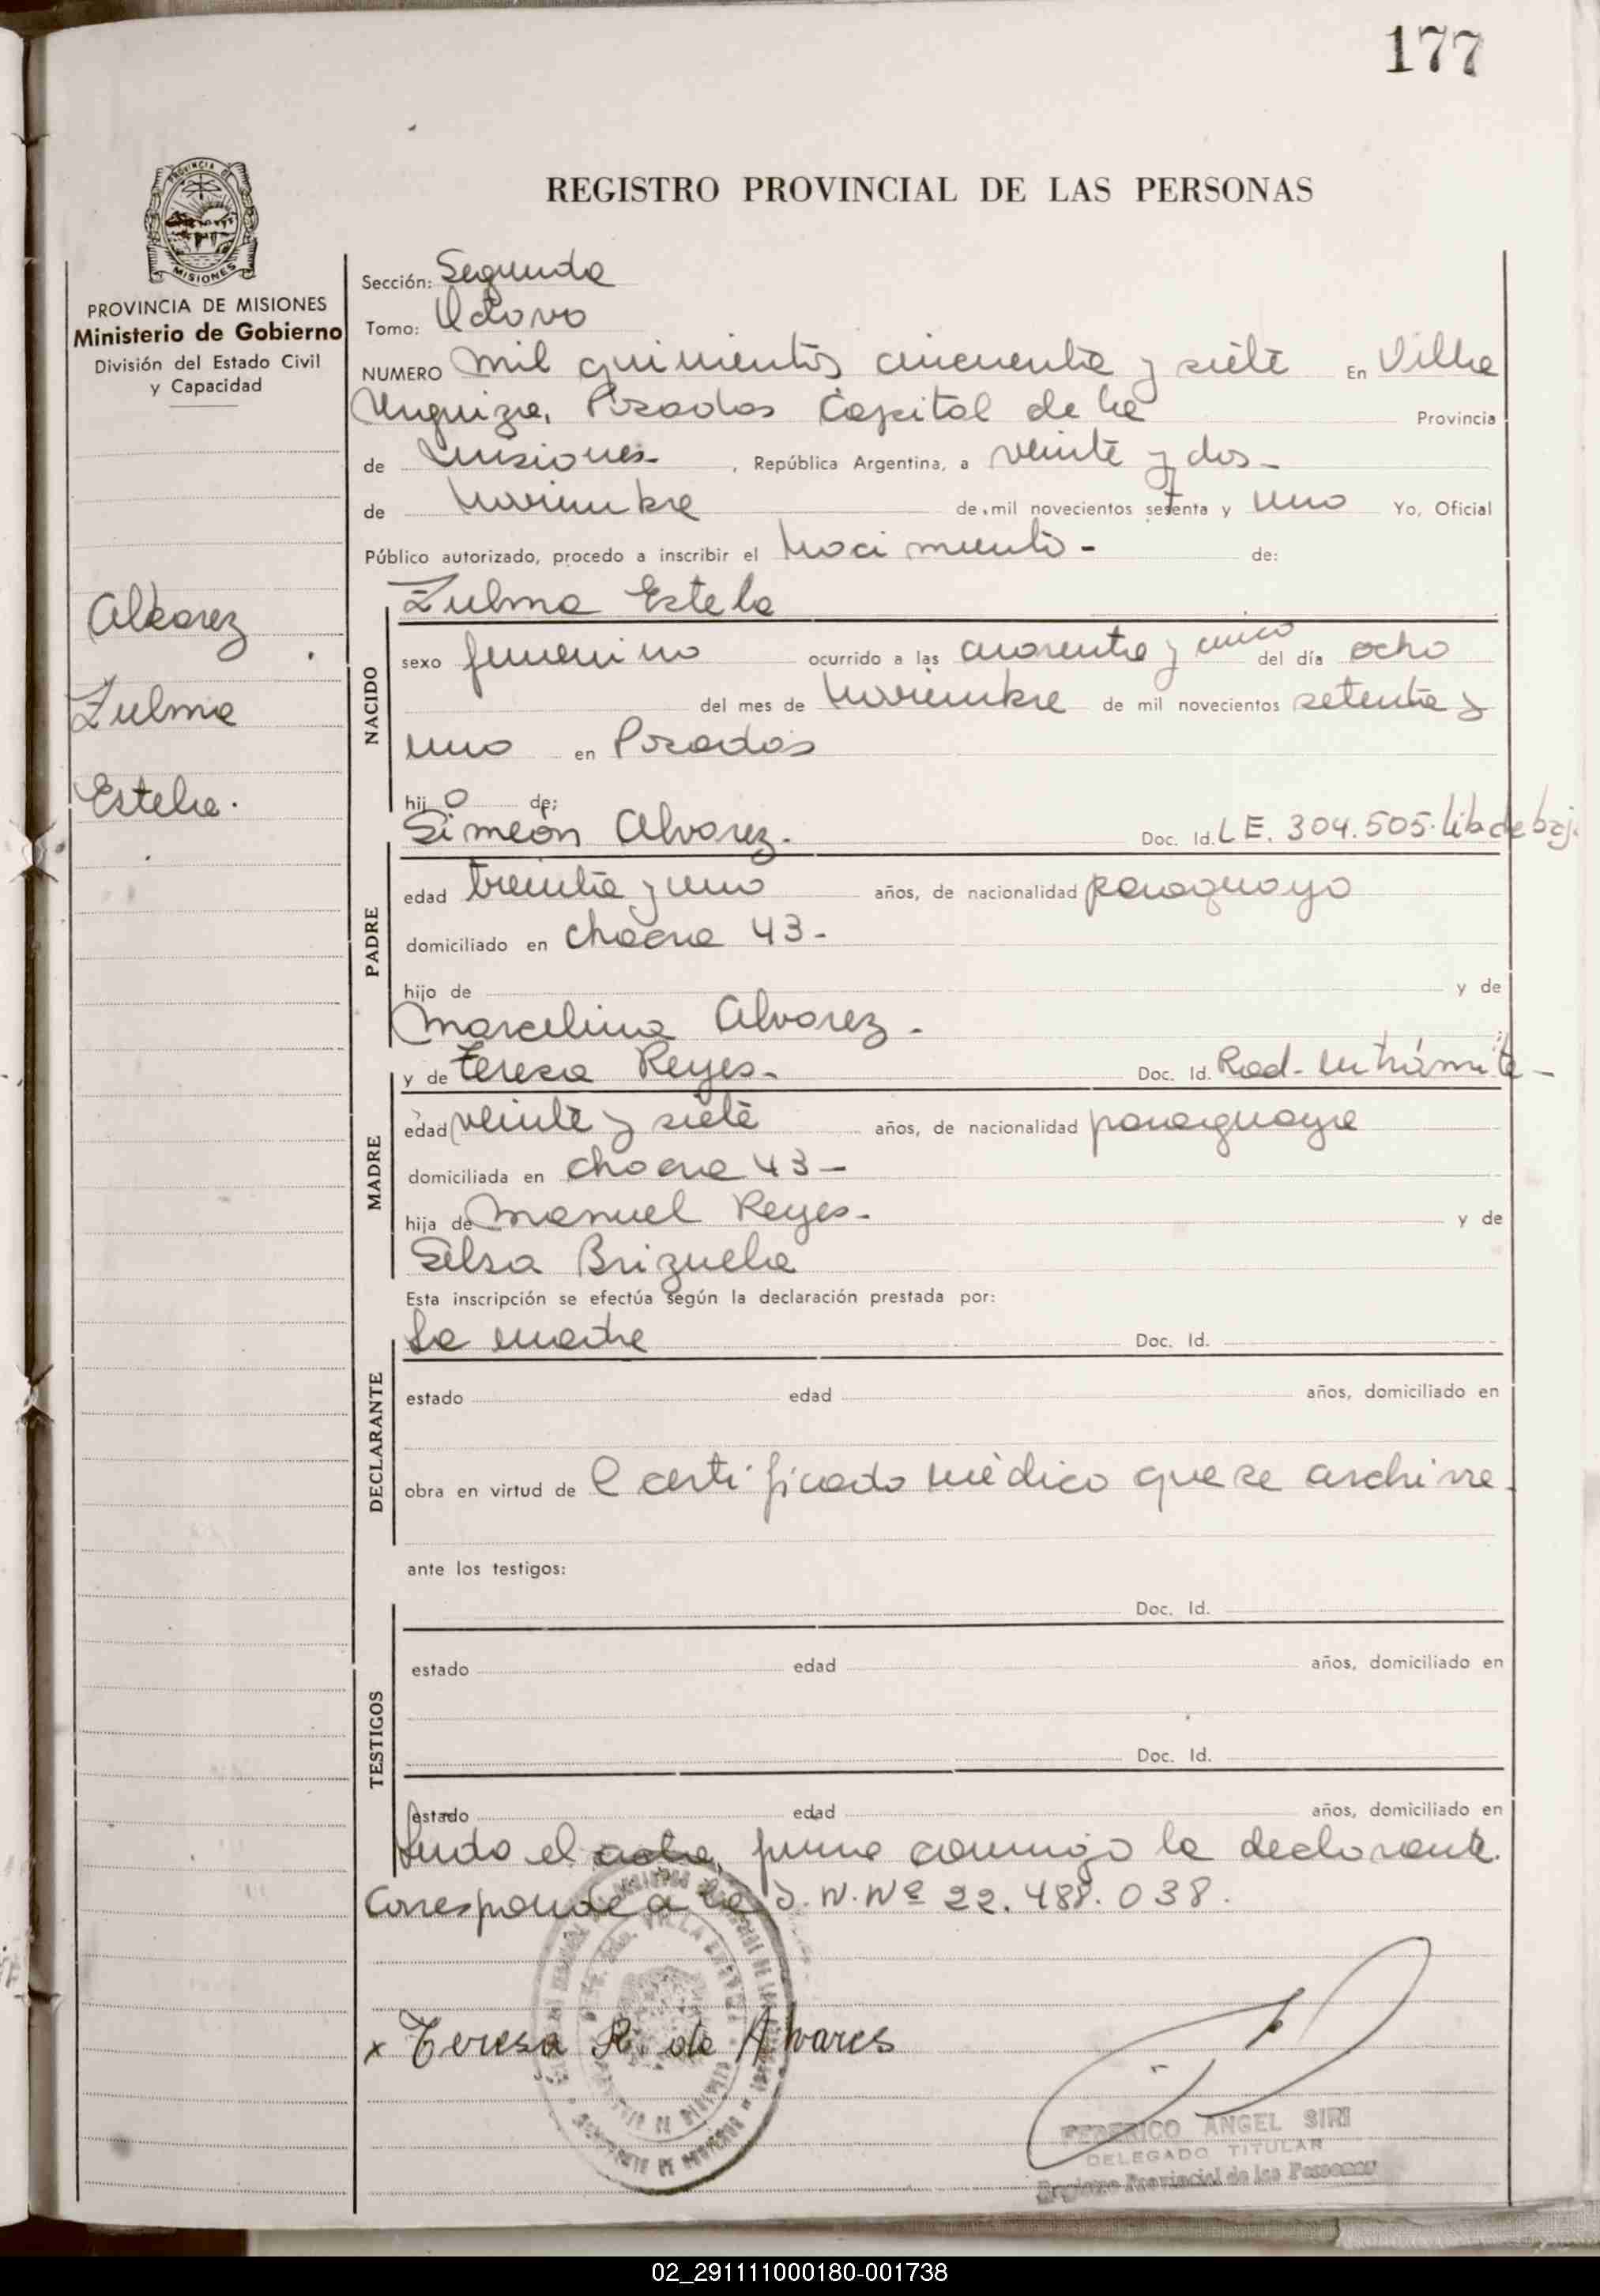 177
REGISTRO PROVINCIAL DE LAS PERSONAS
PROVINCIA DE MISIONES
Ministerio de Gobierno
División del Estado Civil
y Capacidad
Sección: Segunda
Tomo: Octavo
NUMERO mil quinientos cincuenta y siete En Villa
Urquiza, Posadas Capital de la Provincia
de Misiones - , República Argentina, a veinte y dos -
de Noviembre de mil novecientos setenta y uno Yo, Oficial
Público autorizado, procedo a inscribir el Nacimiento - de:
Alvarez
Zulma
Estela.
NACIDO
Zulma Estela
sexo femenino ocurrido a las cuarenta y cinco del día ocho
del mes de Noviembre de mil novecientos setenta y
uno en Posadas
hij o de:
PADRE
Simeón Alvarez. Doc. Id. L E. 304.505. lib de baj.
edad treinta y uno años, de nacionalidad paraguayo
domiciliado en chacra 43 -
hijo de y de
Marcelina Alvarez -
MADRE
y de Teresa Reyes - Doc. Id. Rad. en trámite -
edad veinte y siete años, de nacionalidad paraguaya
domiciliada en chacra 43 -
hija de Manuel Reyes - y de
Selsa Brizuela
Esta inscripción se efectúa según la declaración prestada por:
DECLARANTE
La madre Doc. Id.
estado edad años, domiciliado en
obra en virtud de l certificado médico que se archiva.
ante los testigos:
TESTIGOS
Doc. Id.
estado edad años, domiciliado en
Doc. Id.
estado edad años, domiciliado en
Leida el acta, firma conmigo la declarante.
Corresponde a la D. N. Nº 22.488.038.
x Teresa R. de Alvares
FEDERICO ANGEL SIRI
DELEGADO TITULAR
Registro Provincial de las Personas
02_291111000180-001738